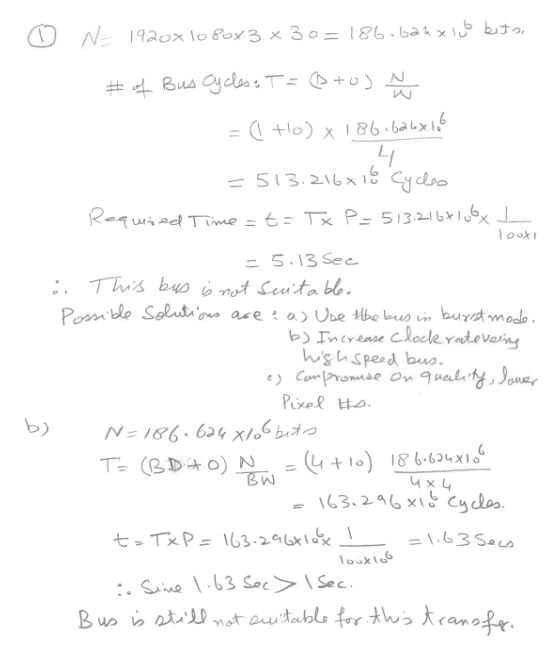 ① N= 1920x1080x3 x 30= 186.624 x 10⁶ bits.
# of Bus Cycles: T= (D+0) N/W
= (1 +10) x 186.624x10⁶/4
= 513.216x10⁶ Cycles
Required Time = t= Tx P= 513.216x10⁶x 1/100x1
= 5.13 Sec
∴ This bus is not Suitable.
Possible Solutions are : a) Use the bus in burst mode.
b) Increase Clock rate
high speed bus.
c) Compromise on quality, lower
Pixel #s.
b) N=186.624 x10⁶ bits
T= (BD+0) N/BW = (4+10) 186.624x10⁶/4x4
= 163.296 x10⁶ Cycles.
t= TxP= 163.296x10⁶x 1/100x10⁶ =1.63 Secs
∴ Sine 1.63 Sec > 1 Sec.
Bus is still not suitable for this transfer.